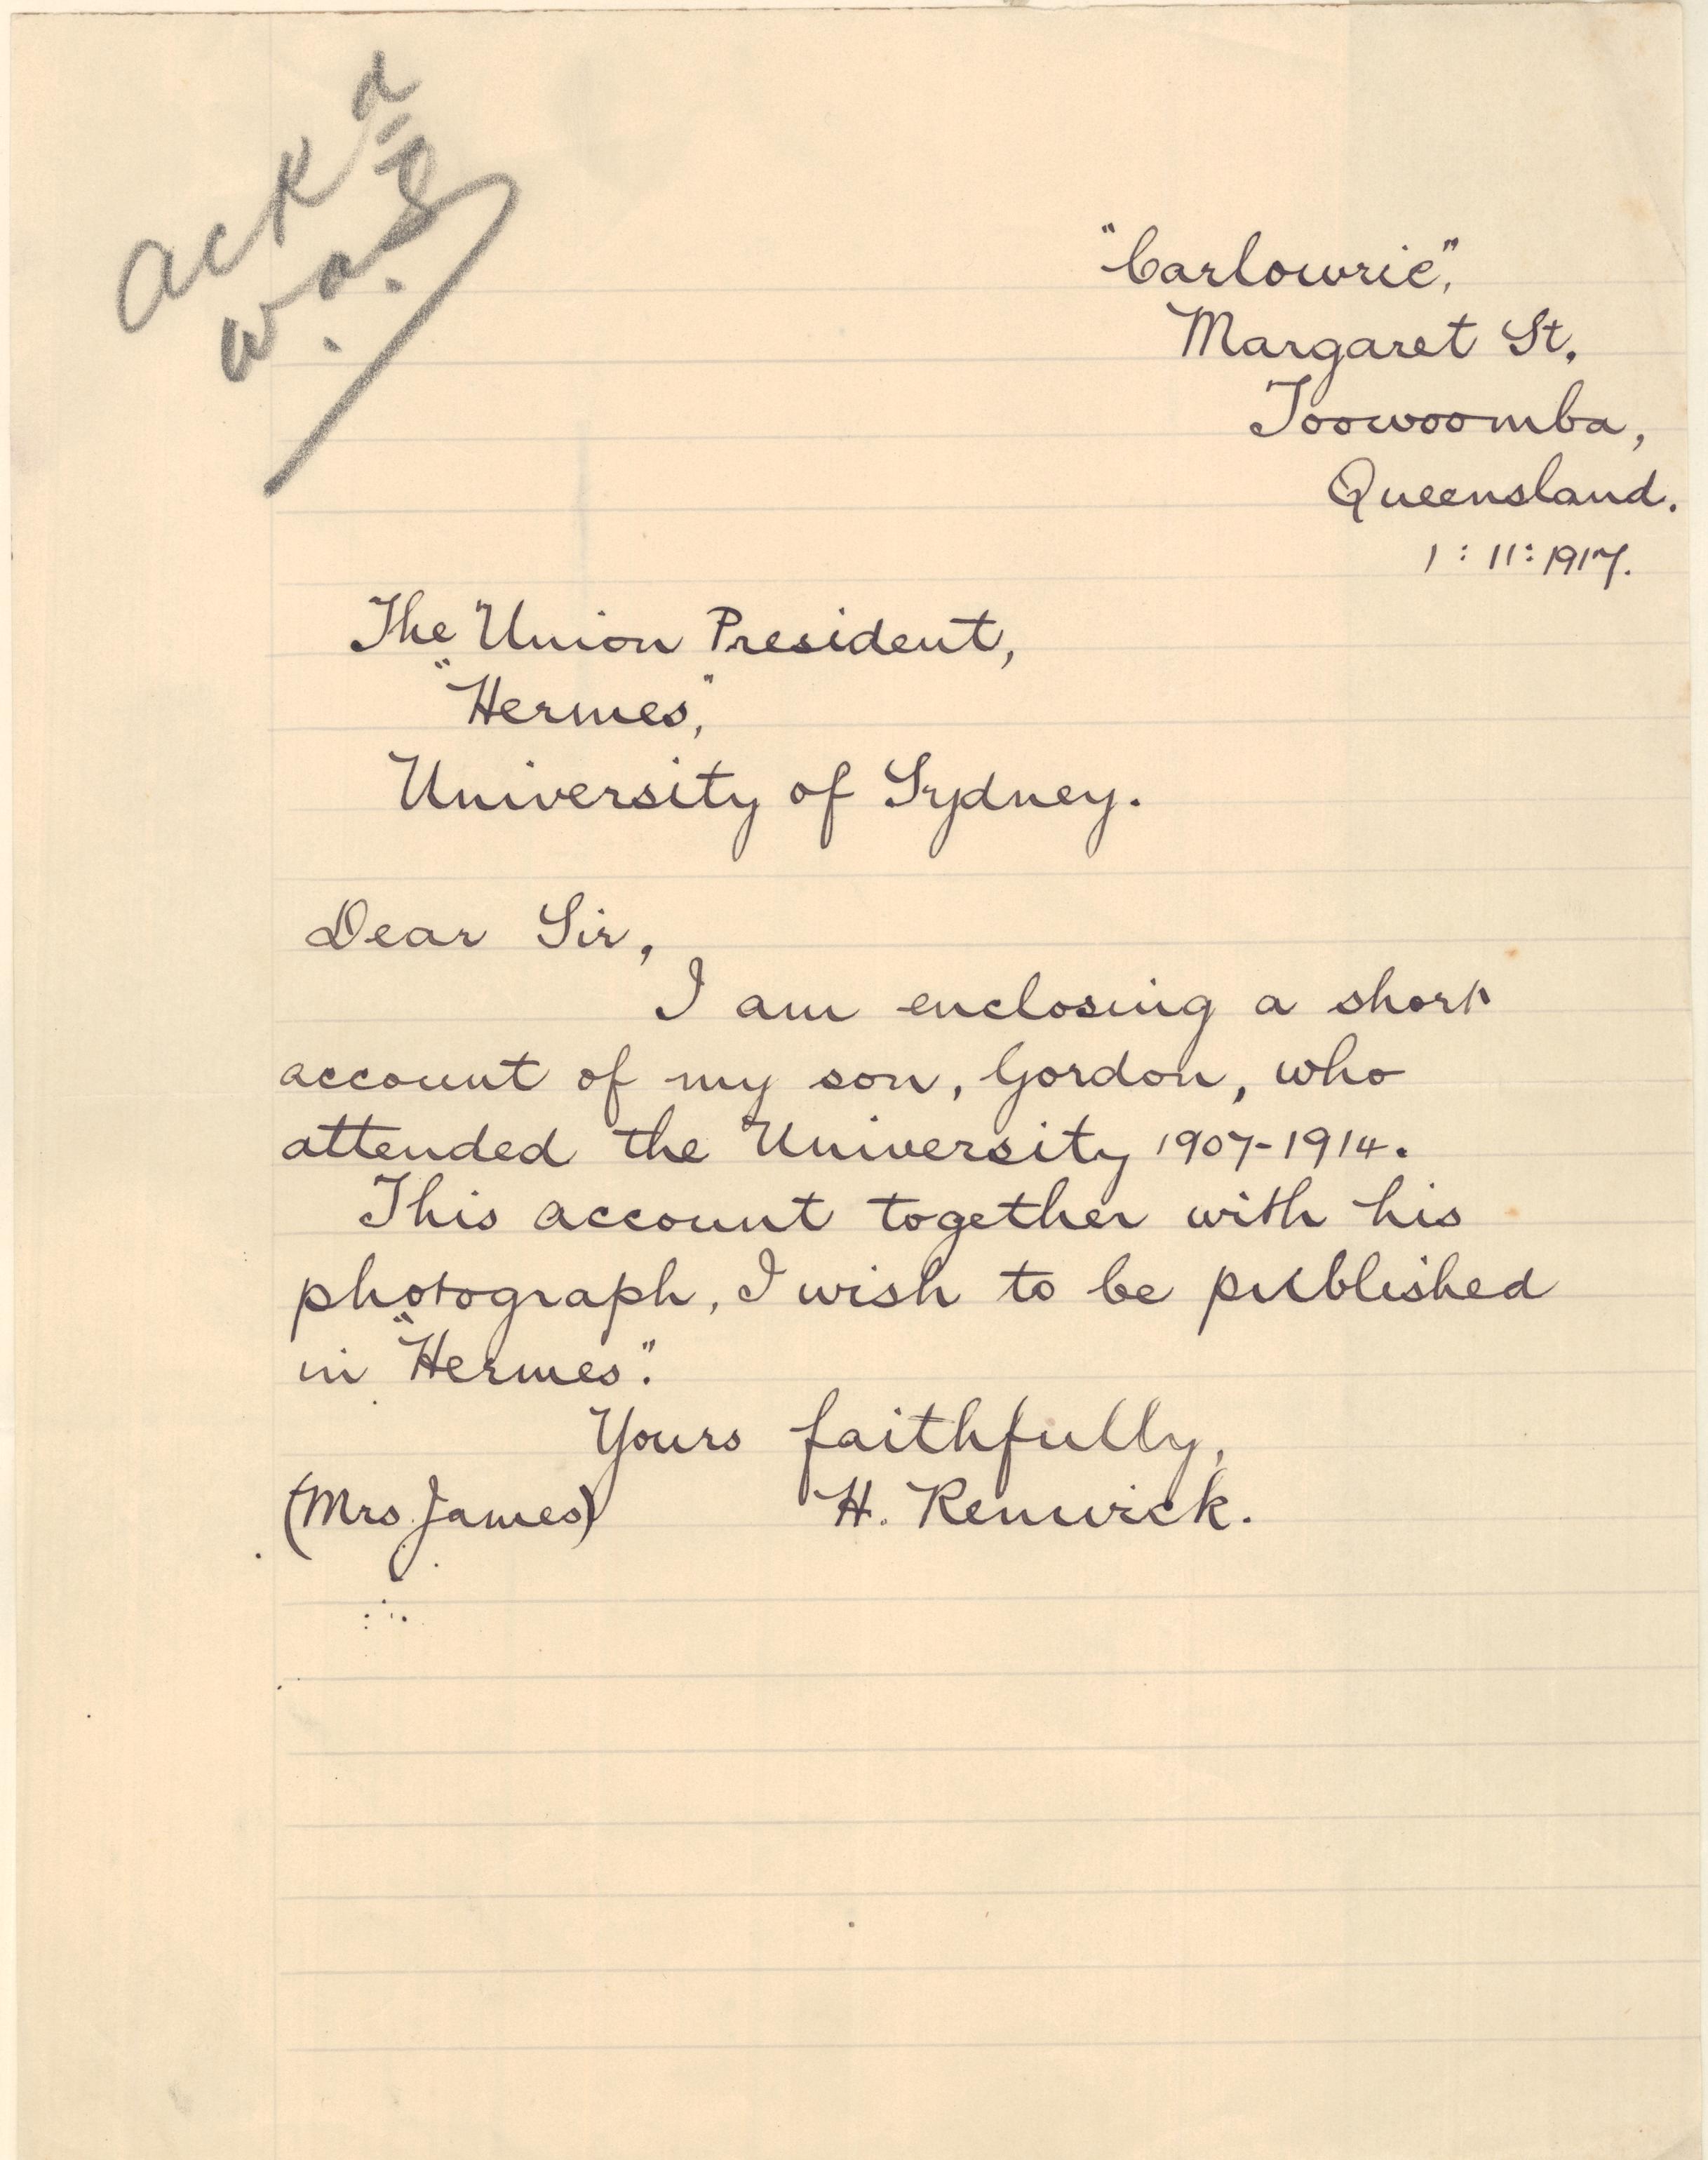 ackd
"Carlowrie",
Margaret St.,
Toowoomba,
Queensland.
1:11:1917.
The Union President,
"Hermes,"
University of Sydney.
Dear Sir,
I am enclosing a short
account of my son, Gordon, who
attended the University 1907-1914.
This account together with his
photograph, I wish to be published
in "Hermes".
Yours faithfully,
(Mrs. James) H. Renwick.